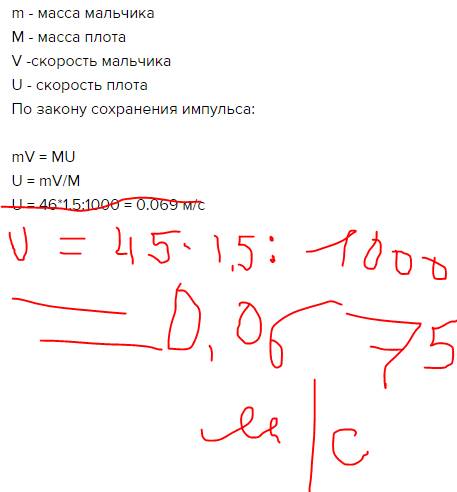 m - масса мальчика
M - масса плота
V -скорость мальчика
U - скорость плота
По закону сохранения импульса:
mV = MU
U = mV/M
U = 46*1.5:1000 = 0.069 м/с
U = 45· 1,5 : 1000
= 0,0675
м/с